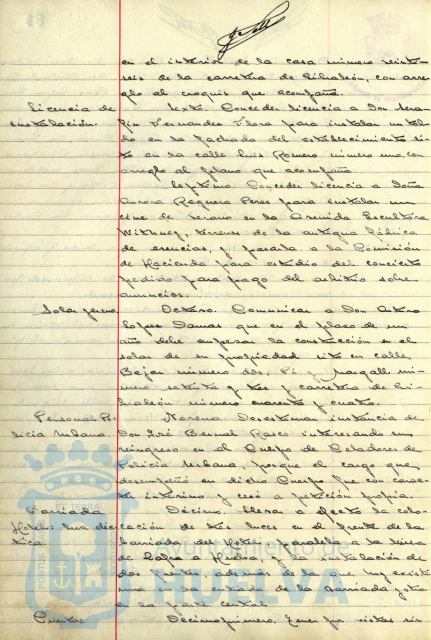 en el interior de la casa número veinte-
seis de la carretera de Gibraleón, con arre-
glo al croquis que acompaña.
Licencia de
instalación.
Sexto. Conceder licencia a Don Sera-
fín Fernandez para instalar un tol-
do en la fachada del establecimiento si-
to en la calle Luis Romero número uno, con
arreglo al plano que acompaña.
Septimo. Conceder licencia a Doña
Aurora Reguera Perez para instalar un
cine de verano en la Avenida Escultora
Withney, terreno de la antigua fábrica
de esencias, y pasarla a la Comisión
de Hacienda para estudio del concierto
pedido para pago del arbitrio sobre
anuncios.
Solar yermo.
Octavo. Comunicar a Don Arturo
Lopez Damas que en el plazo de un
año debe empezar la construcción en el
solar de su propiedad sito en calle
Bejar número dos, Pi y Margall nú-
mero setenta y tres y carretera de Gi-
braleón número cuarenta y cuatro.
Personal Po-
licia Urbana.
Noveno. Desestimar instancia de
Don José Bernal Rasco interesando su
reingreso en el Cuerpo de Celadores de
Policia Urbana, porque el cargo que
desempeñó en dicho Cuerpo fue con carac-
ter interino y cesó a petición propia.
Barriada
Hotel: Luz eléc-
trica.
Décimo. Llevar a efecto la colo-
cación de tres luces en el frente de la
barriada del Hotel paralela a la linea
de Zafra a Huelva, y la instalación de
dos fuentes, además de la que hoy existe
una en la entrada de la barriada y otra
en la parte central.
Cuentas
Decimoprimero. Tener por vistas sin
Ayuntamiento de
HUELVA